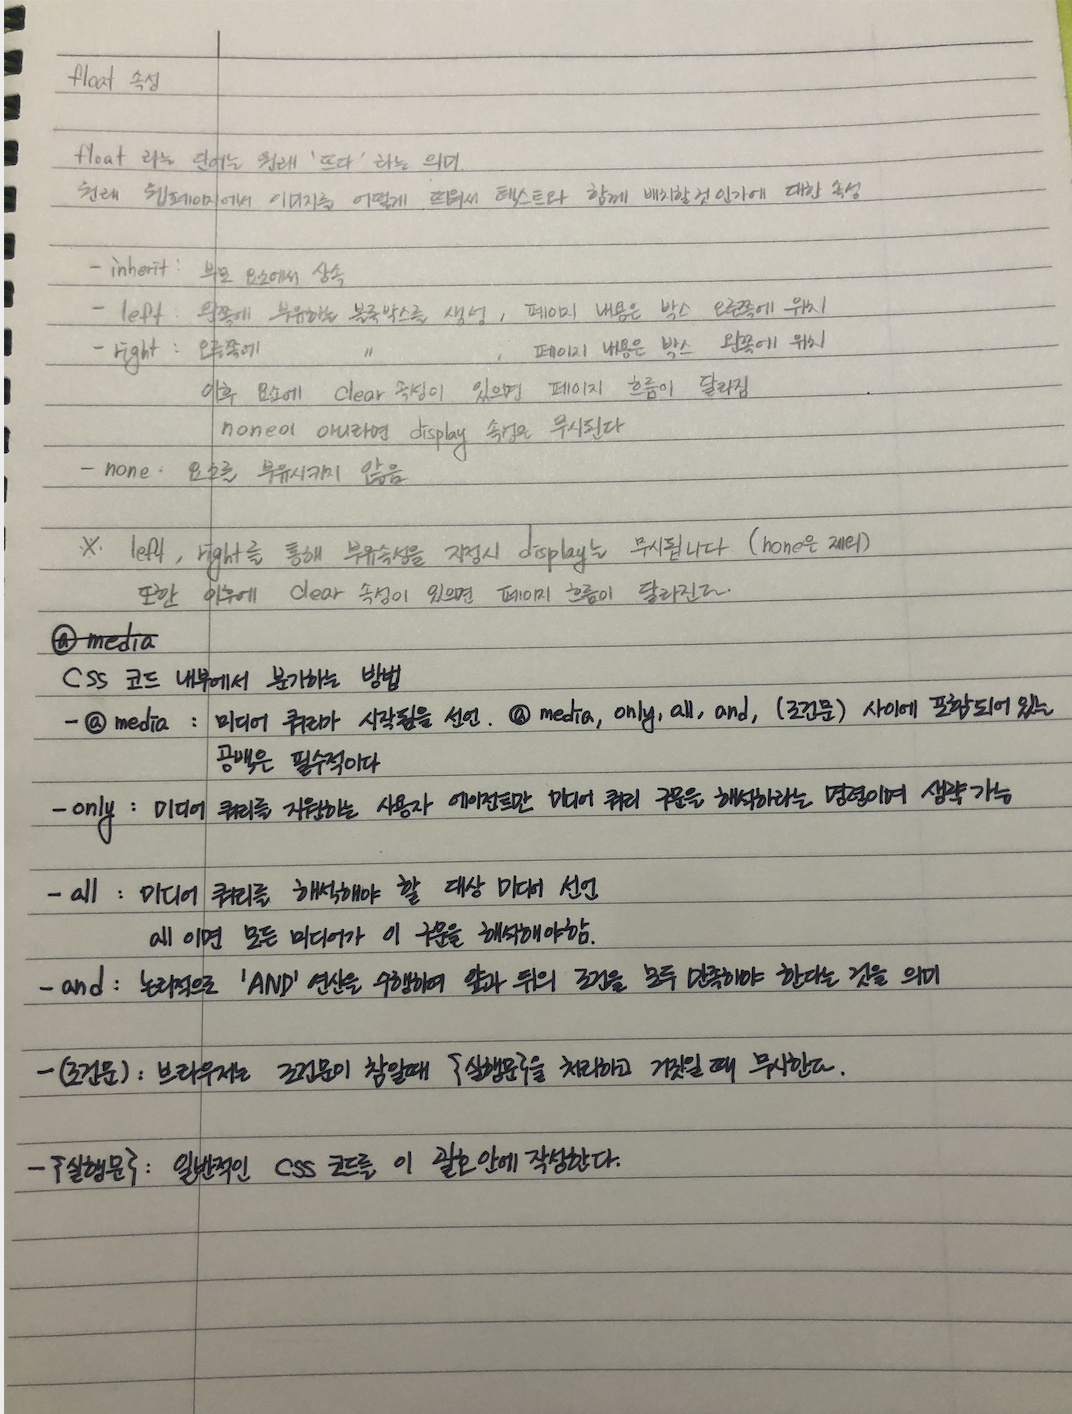 float 속성
float 라는 단어는 원래 '뜨다' 라는 의미.
원래 웹페이지에서 이미지를 어떻게 띄워서 텍스트와 함께 배치할것인가에 대한 속성
- inherit : 부모 요소에서 상속
- left : 왼쪽에 부유하는 블록박스를 생성, 페이지 내용은 박스 오른쪽에 위치
- right : 오른쪽에 〃 , 페이지 내용은 박스 왼쪽에 위치
이후 요소에 clear 속성이 있으면 페이지 흐름이 달라짐
none이 아니라면 display 속성은 무시된다
- none : 요소를 부유시키지 않음
※ left, right를 통해 부유속성을 지정시 display는 무시됩니다 (none은 제외)
또한 이후에 clear 속성이 있으면 페이지 흐름이 달라진다.
@ media
CSS 코드 내부에서 분기하는 방법
- @ media : 미디어 쿼리가 시작됨을 선언. @ media, only, all, and, (조건문) 사이에 포함되어 있는
공백은 필수적이다
- only : 미디어 쿼리를 지원하는 사용자 에이전트만 미디어 쿼리 구문을 해석하라는 명령이며 생략가능
- all : 미디어 쿼리를 해석해야 할 대상 미디어 선언
all 이면 모든 미디어가 이 구문을 해석해야함.
- and : 논리적으로 'AND' 연산을 수행하여 앞과 뒤의 조건을 모두 만족해야 한다는 것을 의미
- (조건문) : 브라우저는 조건문이 참일때 {실행문}을 처리하고 거짓일 때 무시한다.
- {실행문} : 일반적인 CSS 코드를 이 괄호안에 작성한다.